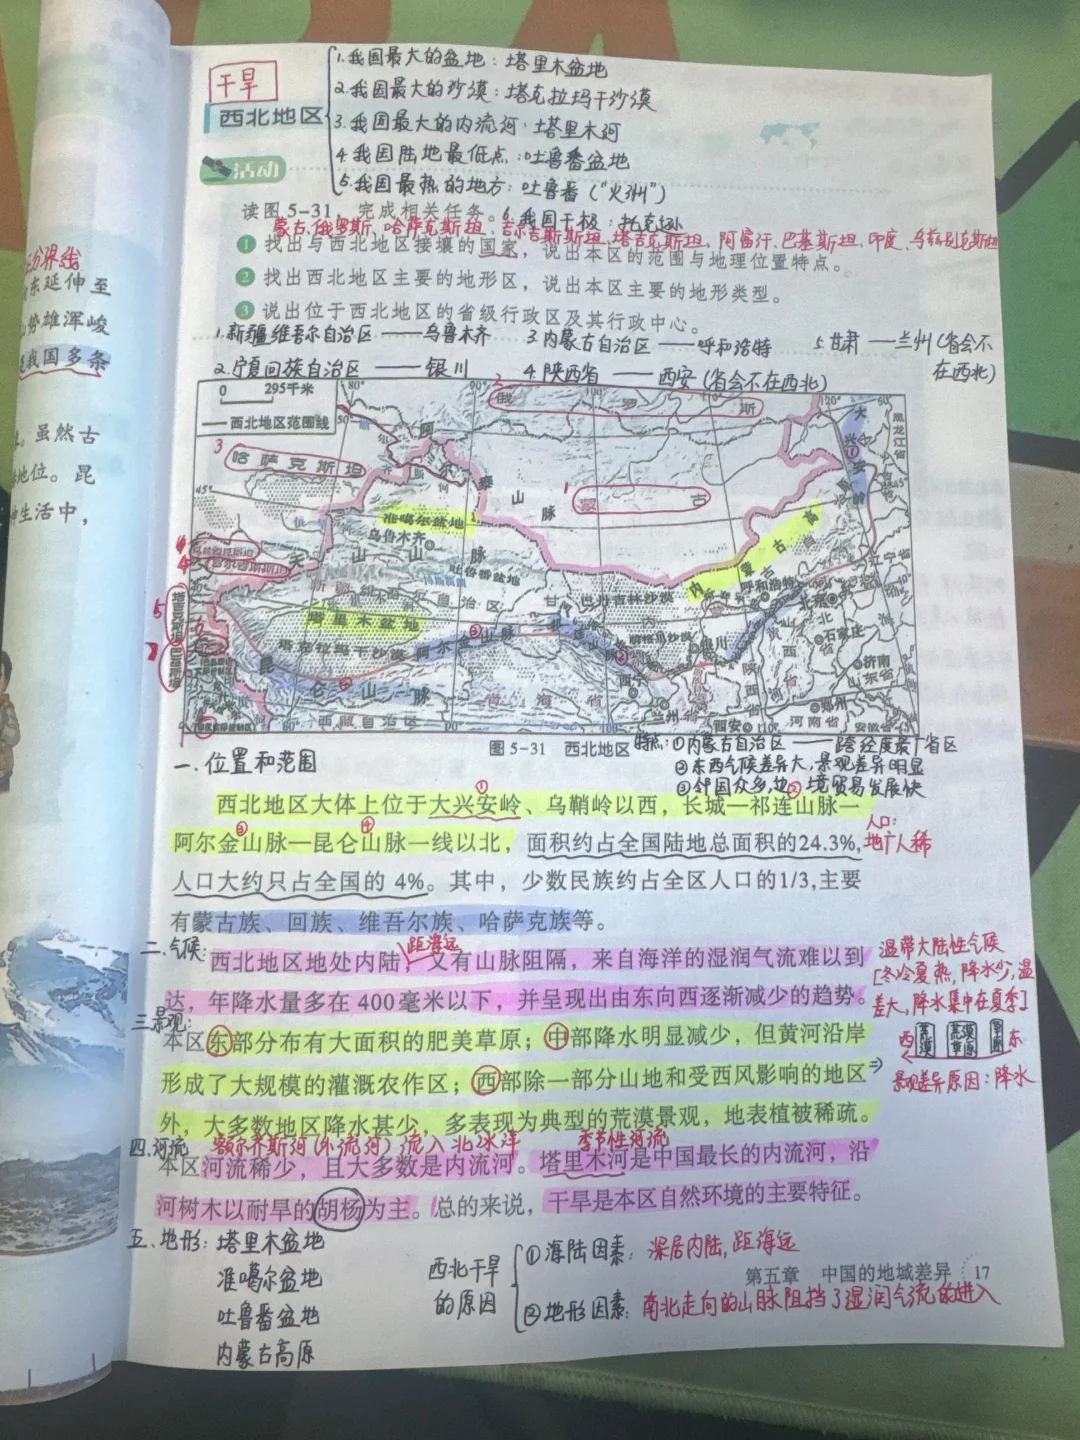 干旱
西北地区
1.我国最大的盆地：塔里木盆地
2.我国最大的沙漠：塔克拉玛干沙漠
3.我国最大的内流河：塔里木河
4.我国陆地最低点：吐鲁番盆地
5.我国最热的地方：吐鲁番（“火洲”）
6.我国干极：托克逊
活动
读图 5-31，完成相关任务。
蒙古、俄罗斯、哈萨克斯坦、吉尔吉斯斯坦、塔吉克斯坦、阿富汗、巴基斯坦、印度、乌兹别克斯坦
1 找出与西北地区接壤的国家，说出本区的范围与地理位置特点。
2 找出西北地区主要的地形区，说出本区主要的地形类型。
3 说出位于西北地区的省级行政区及其行政中心。
1.新疆维吾尔自治区——乌鲁木齐
3.内蒙古自治区——呼和浩特
5.甘肃——兰州（省会不在西北）
2.宁夏回族自治区——银川
4.陕西省——西安（省会不在西北）
分界线
东延伸至
势雄浑峻
我国多条
虽然古
地位。昆
生活中，
0 295千米
西北地区范围线
俄罗斯
哈萨克斯坦
蒙古
大兴安岭
黑龙江省
准噶尔盆地
乌鲁木齐
天山山脉
吐鲁番盆地
内蒙古高原
呼和浩特
辽宁省
北京
巴丹吉林沙漠
塔里木盆地
塔克拉玛干沙漠
阿尔金山脉
银川
石家庄
济南
山东省
昆仑山脉
青海省
西宁
兰州
西安
郑州
河南省
安徽省
西藏自治区
图 5-31 西北地区
特点：①内蒙古自治区——跨经度最广省区
②东西气候差异大，景观差异明显
③邻国众多，边境贸易发展快
一.位置和范围
西北地区大体上位于大兴安岭、乌鞘岭以西，长城—祁连山脉—
阿尔金山脉—昆仑山脉一线以北，面积约占全国陆地总面积的24.3%，
人口：
地广人稀
人口大约只占全国的 4%。其中，少数民族约占全区人口的1/3，主要
有蒙古族、回族、维吾尔族、哈萨克族等。
二.气候：
距海远
西北地区地处内陆，又有山脉阻隔，来自海洋的湿润气流难以到
达，年降水量多在 400毫米以下，并呈现出由东向西逐渐减少的趋势。
温带大陆性气候
[冬冷夏热，降水少，温
差大，降水集中在夏季]
三.景观：
本区东部分布有大面积的肥美草原；中部降水明显减少，但黄河沿岸
形成了大规模的灌溉农作区；西部除一部分山地和受西风影响的地区
外，大多数地区降水甚少，多表现为典型的荒漠景观，地表植被稀疏。
西 荒漠 荒漠草原 草原 东
景观差异原因：降水
四.河流
额尔齐斯河（外流河）流入北冰洋
季节性河流
本区河流稀少，且大多数是内流河。塔里木河是中国最长的内流河，沿
河树木以耐旱的胡杨为主。总的来说，干旱是本区自然环境的主要特征。
五.地形：塔里木盆地
准噶尔盆地
吐鲁番盆地
内蒙古高原
西北干旱
的原因
①海陆因素：深居内陆，距海远
第五章 中国的地域差异 17
②地形因素：南北走向的山脉阻挡了湿润气流的进入